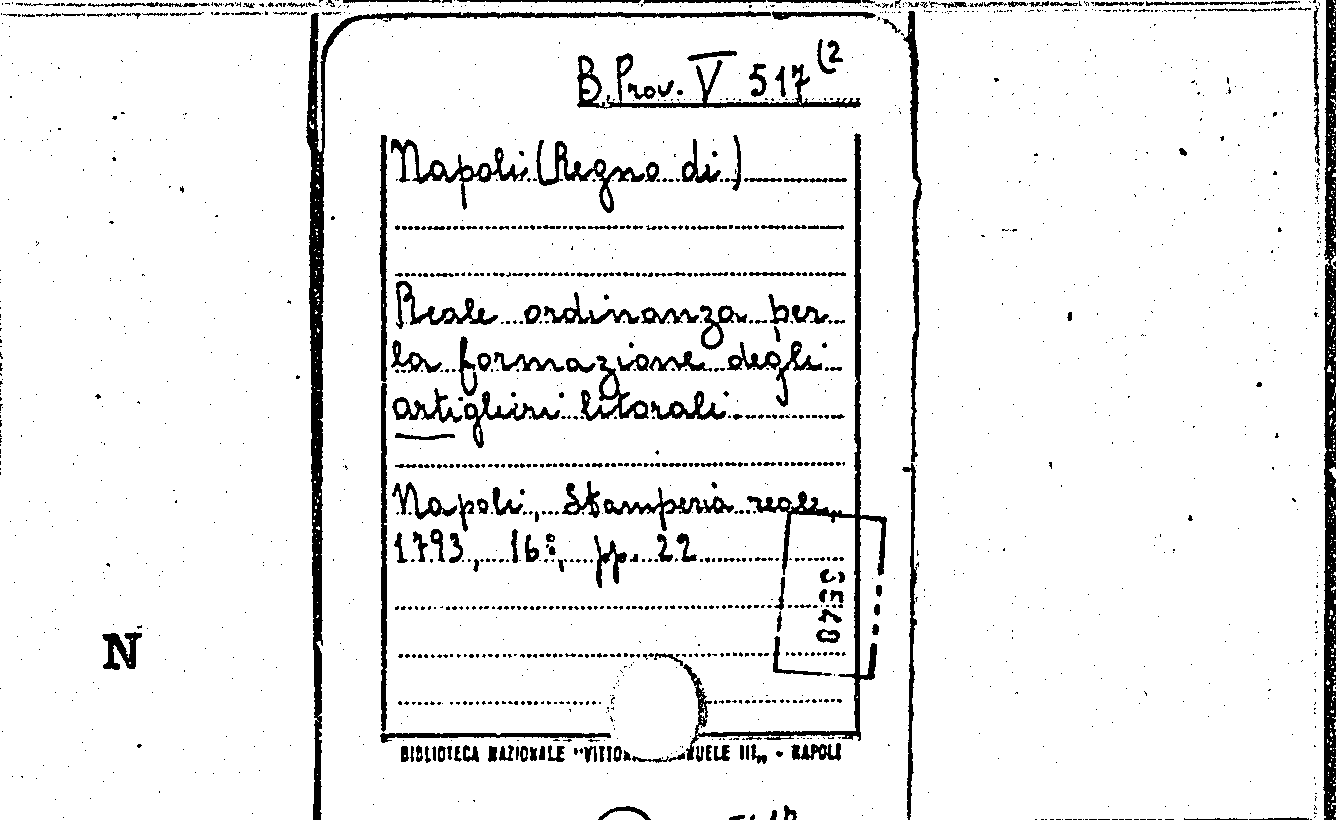 B. Prov. V 517 (2
Napoli (Regno di)
Reale ordinanza per
la formazione degli
artiglieri litorali.
Napoli, Stamperia reale,
1793, 16°, pp. 22
3540
N
BIBLIOTECA NAZIONALE "VITTO NUELE III„ - NAPOLI